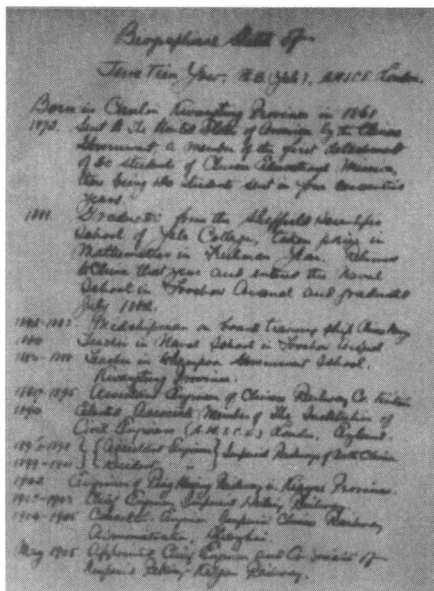 Biographical Sketch of
Jeme Tien Yow, Ph.B. (Yale), A.M.I.C.E. London.
Born in Canton Kwangtung Province in 1861
1872. Sent to the United States of America by the Chinese
Government a member of the first detachment
of 30 students of Chinese Educational Mission
there being 120 students sent in four consecutive
years.
1881. Graduated from the Sheffield Scientific
School of Yale College, taken prize in
Mathematics in Freshman Year. Returned
to China that year and entered the Naval
School in Foochow Arsenal and graduated
July 1882.
1882-1883 Midshipman on board training ship
Teacher in Naval School in Foochow Arsenal
Teacher in Whampoa Government School,
Kwangtung Province.
Assistant Engineer of Chinese Railway Co. Tientsin
Elected Associate Member of The Institution of
Civil Engineers (A.M.I.C.E.) London, England.
Assistant Engineer Imperial Railways of North China
1902 Engineer of Railway in Province.
1902-1903 Chief Engineer, Imperial Railway
Engineer Imperial Chinese Railway
Administration, Shanghai.
May 1905 Appointed Chief Engineer and of
Imperial Peking-Kalgan Railway.